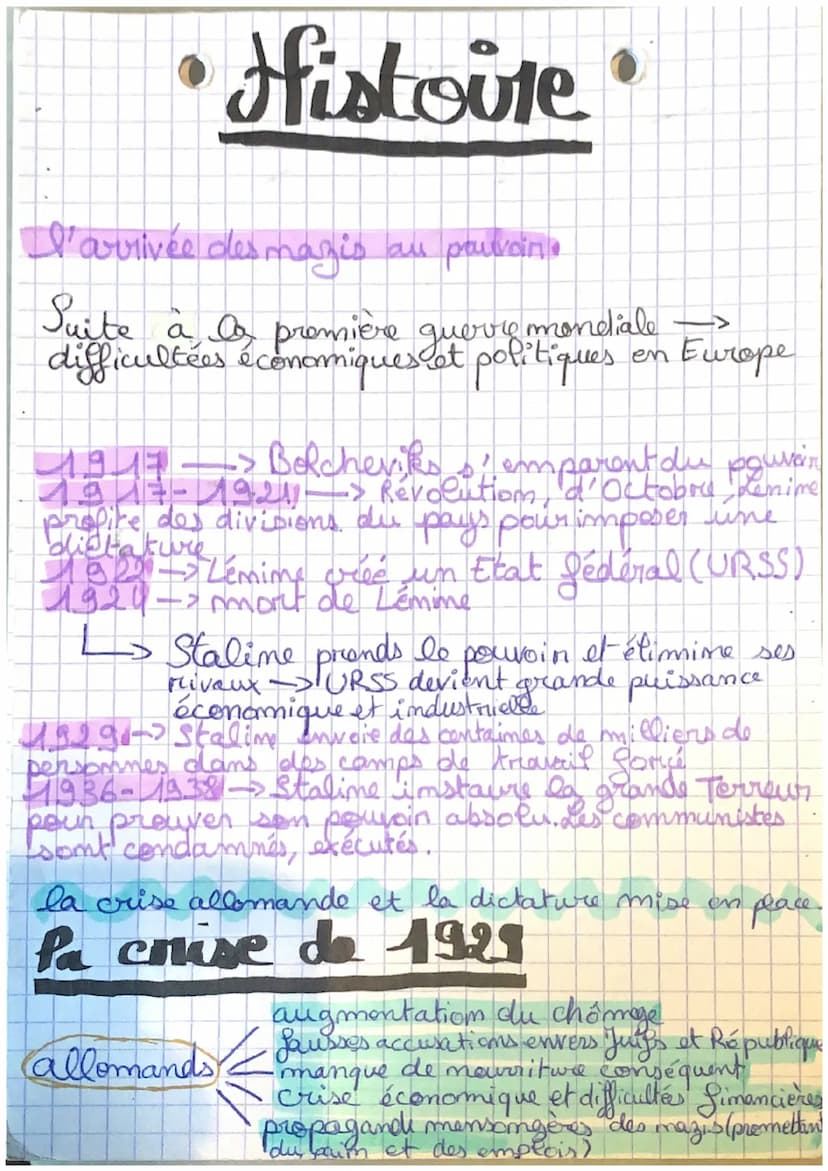 Histoire
l'arrivée des nazis au pouvoir.
Suite à la première guerre mondiale —>
difficultées économiques et politiques en Europe
1917 —> Bolcheviks s'emparent du pouvoir
1917-1921 —> Révolution, d'Octobre, Lénine
profite des divisions du pays pour imposer une
dictature
1922 —> Lénine créé un Etat fédéral (URSS)
1924 —> mort de Lénine
↳ Staline prends le pouvoir et élimine ses
rivaux —> l'URSS devient grande puissance
économique et industrielle
1929 —> Staline envoie des centaines de milliers de
personnes dans des camps de travail forcé
1936-1938 —> Staline instaure la grande Terreur
pour prouver son pouvoir absolu. Les communistes
sont condamnés, exécutés.
la crise allemande et la dictature mise en place.
La crise de 1929
augmentation du chômage
fausses accusations envers Juifs et République
allemands
manque de nourriture conséquent
crise économique et difficultés financières
propagande mensongères des nazis (promettant
du pain et des emplois)